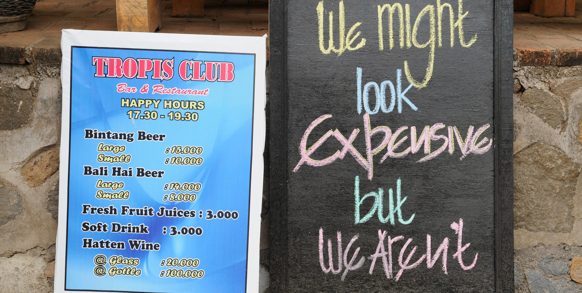 TROPIS CLUB
Bar & Restaurant
HAPPY HOURS
17.30 - 19.30
Bintang Beer
Large : 15.000
Small : 10.000
Bali Hai Beer
Large : 14.000
Small : 8.000
Fresh Fruit Juices : 3.000
Soft Drink : 3.000
Hatten Wine
@ Glass : 20.000
@ Gottle : 100.000
We might
look
Expensive
but
We Aren't